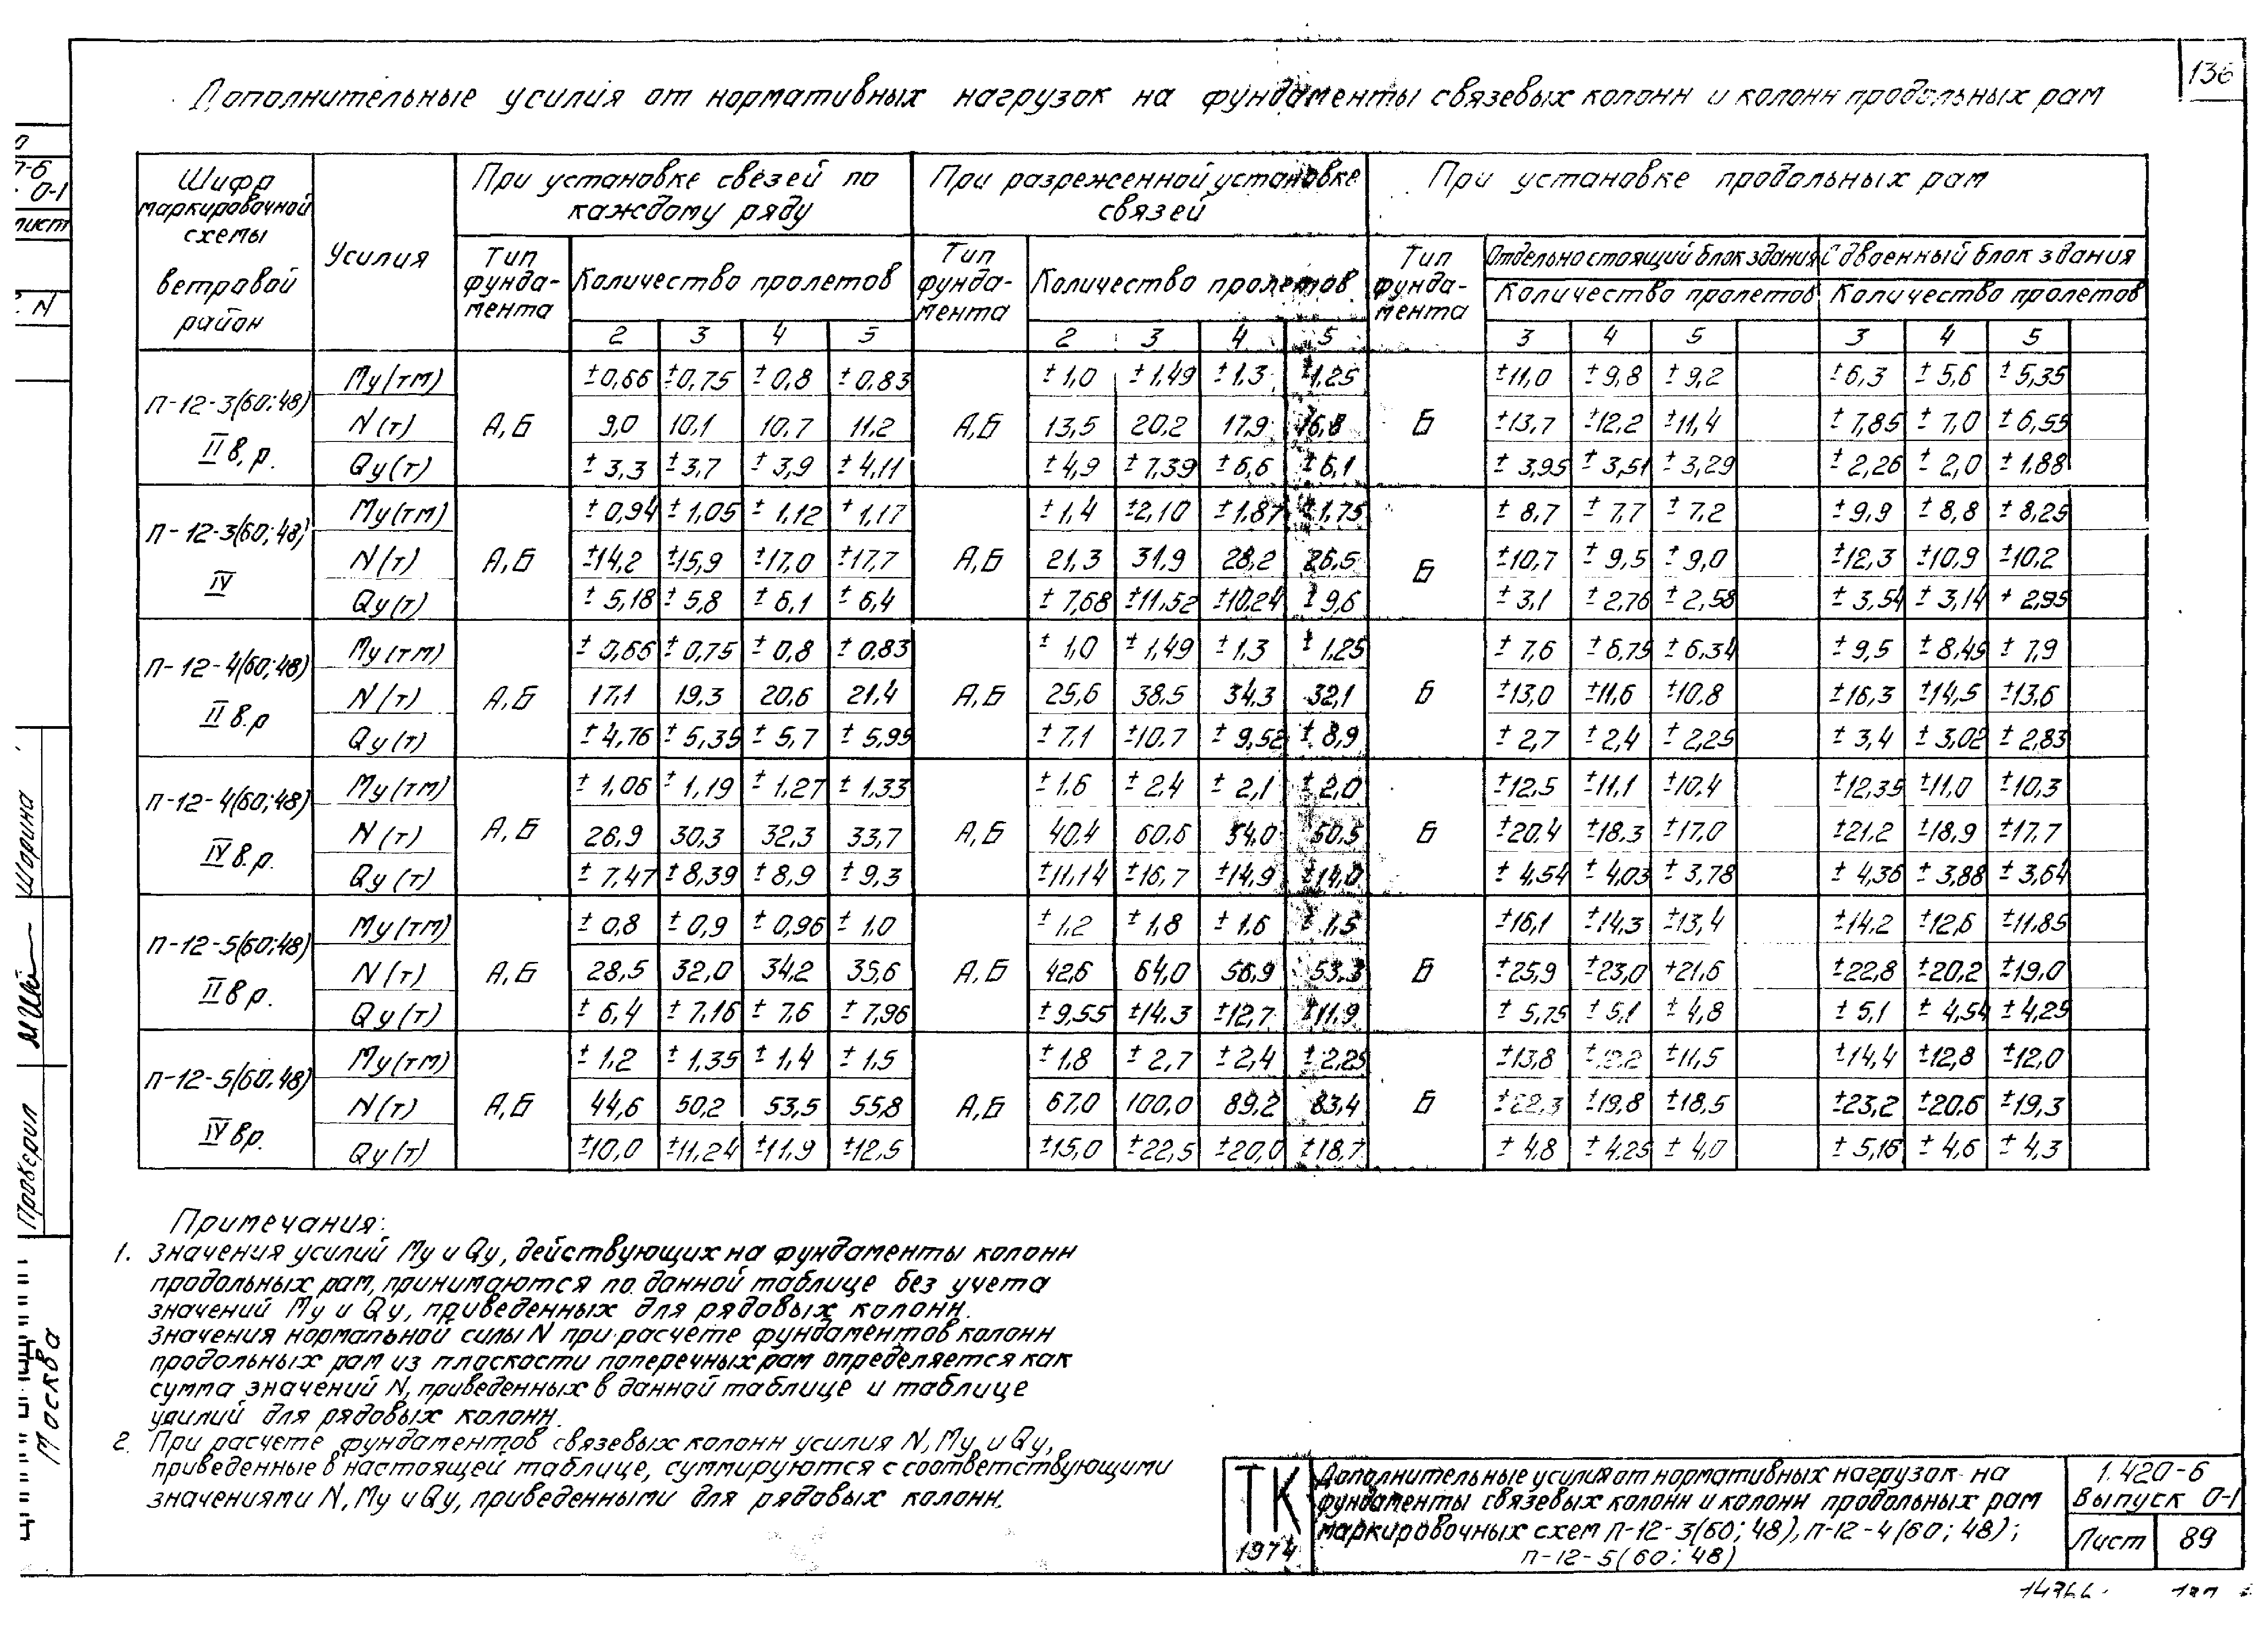 136
Дополнительные усилия от нормативных нагрузок на фундаменты связевых колонн и колонн продольных рам
Шифр маркировочной схемы ветровой район | Усилия | При установке свезей по каждому ряду | При разреженной установке связей | При установке продольных рам
Тип фунда-мента | Количество пролетов | Тип фунда-мента | Количество пролетов | Тип фунда-мента | Отдельно стоящий блок здания | Сдвоенный блок здания
Количество пролетов | Количество пролетов
2 | 3 | 4 | 5 | 2 | 3 | 4 | 5 | 3 | 4 | 5 | 3 | 4 | 5
П-12-3(60;48) II в.р.
Му(тм) | ±0,66 | ±0,75 | ±0,8 | ±0,83 | ±1,0 | ±1,49 | ±1,3 | ±1,25 | ±11,0 | ±9,8 | ±9,2 | ±6,3 | ±5,6 | ±5,35
N(т) | А,Б | 9,0 | 10,1 | 10,7 | 11,2 | А,Б | 13,5 | 20,2 | 17,9 | 16,8 | Б | ±13,7 | ±12,2 | ±11,4 | ±7,85 | ±7,0 | ±6,55
Qу(т) | ±3,3 | ±3,7 | ±3,9 | ±4,11 | ±4,9 | ±7,39 | ±6,6 | ±6,1 | ±3,95 | ±3,51 | ±3,29 | ±2,26 | ±2,0 | ±1,88
П-12-3(60;48) IV
Му(тм) | ±0,94 | ±1,05 | ±1,12 | +1,17 | ±1,4 | ±2,10 | ±1,87 | ±1,75 | ±8,7 | ±7,7 | ±7,2 | ±9,9 | ±8,8 | ±8,25
N(т) | А,Б | ±14,2 | ±15,9 | ±17,0 | ±17,7 | А,Б | 21,3 | 31,9 | 28,2 | 26,5 | Б | ±10,7 | ±9,5 | ±9,0 | ±12,3 | ±10,9 | ±10,2
Qу(т) | ±5,18 | ±5,8 | ±6,1 | ±6,4 | ±7,68 | ±11,52 | ±10,24 | ±9,6 | ±3,1 | ±2,76 | ±2,58 | ±3,54 | ±3,14 | +2,95
П-12-4(60;48) II в.р
Му(тм) | ±0,66 | ±0,75 | ±0,8 | ±0,83 | ±1,0 | ±1,49 | ±1,3 | ±1,25 | ±7,6 | ±6,75 | ±6,34 | ±9,5 | ±8,45 | ±7,9
N(т) | А,Б | 17,1 | 19,3 | 20,6 | 21,4 | А,Б | 25,6 | 38,5 | 34,3 | 32,1 | Б | ±13,0 | ±11,6 | ±10,8 | ±16,3 | ±14,5 | ±13,6
Qу(т) | ±4,76 | ±5,35 | ±5,7 | ±5,95 | ±7,1 | ±10,7 | ±9,52 | ±8,9 | ±2,7 | ±2,4 | ±2,25 | ±3,4 | ±3,02 | ±2,83
П-12-4(60;48) IV в.р.
Му(тм) | ±1,06 | ±1,19 | ±1,27 | ±1,33 | ±1,6 | ±2,4 | ±2,1 | ±2,0 | ±12,5 | ±11,1 | ±10,4 | ±12,35 | ±11,0 | ±10,3
N(т) | А,Б | 26,9 | 30,3 | 32,3 | 33,7 | А,Б | 40,4 | 60,6 | 54,0 | 50,5 | Б | ±20,4 | ±18,3 | ±17,0 | ±21,2 | ±18,9 | ±17,7
Qу(т) | ±7,47 | ±8,39 | ±8,9 | ±9,3 | ±11,14 | ±16,7 | ±14,9 | ±14,0 | ±4,54 | ±4,03 | ±3,78 | ±4,36 | ±3,88 | ±3,64
П-12-5(60;48) II в р.
Му(тм) | ±0,8 | ±0,9 | ±0,96 | ±1,0 | ±1,2 | ±1,8 | ±1,6 | ±1,5 | ±16,1 | ±14,3 | ±13,4 | ±14,2 | ±12,6 | ±11,85
N(т) | А,Б | 28,5 | 32,0 | 34,2 | 35,6 | А,Б | 42,6 | 64,0 | 56,9 | 53,3 | Б | ±25,9 | ±23,0 | +21,6 | ±22,8 | ±20,2 | ±19,0
Qу(т) | ±6,4 | ±7,16 | ±7,6 | ±7,96 | ±9,55 | ±14,3 | ±12,7 | ±11,9 | ±5,75 | ±5,1 | ±4,8 | ±5,1 | ±4,54 | ±4,25
П-12-5(60,48) IV вр.
Му(тм) | ±1,2 | ±1,35 | ±1,4 | ±1,5 | ±1,8 | ±2,7 | ±2,4 | ±2,25 | ±13,8 | ±11,5 | ±14,4 | ±12,8 | ±12,0
N(т) | А,Б | 44,6 | 50,2 | 53,5 | 55,8 | А,Б | 67,0 | 100,0 | 89,2 | 83,4 | Б | ±22,3 | ±19,8 | ±18,5 | ±23,2 | ±20,6 | ±19,3
Qу(т) | ±10,0 | ±11,24 | ±11,9 | ±12,5 | ±15,0 | ±22,5 | ±20,0 | ±18,7 | ±4,8 | ±4,25 | ±4,0 | ±5,16 | ±4,6 | ±4,3
Примечания:
1. Значения усилий Му и Qу, действующих на фундаменты колонн
продольных рам, принимаются по данной таблице без учета
значений Му и Qу, приведенных для рядовых колонн.
Значения нормальной силы N при расчете фундаментов колонн
продольных рам из плоскости поперечных рам определяется как
сумма значений N, приведенных в данной таблице и таблице
усилий для рядовых колонн.
2. При расчете фундаментов связевых колонн усилия N, Му и Qу,
приведенные в настоящей таблице, суммируются с соответствующими
значениями N, Му и Qу, приведенными для рядовых колонн.
ТК
1974
Дополнительные усилия от нормативных нагрузок на
фундаменты связевых колонн и колонн продольных рам
маркировочных схем П-12-3(60; 48), П-12-4(60; 48);
П-12-5(60; 48)
1.420-6
Выпуск 0-1
Лист 89
Проверил
Шорина
Москва
О-1
лист